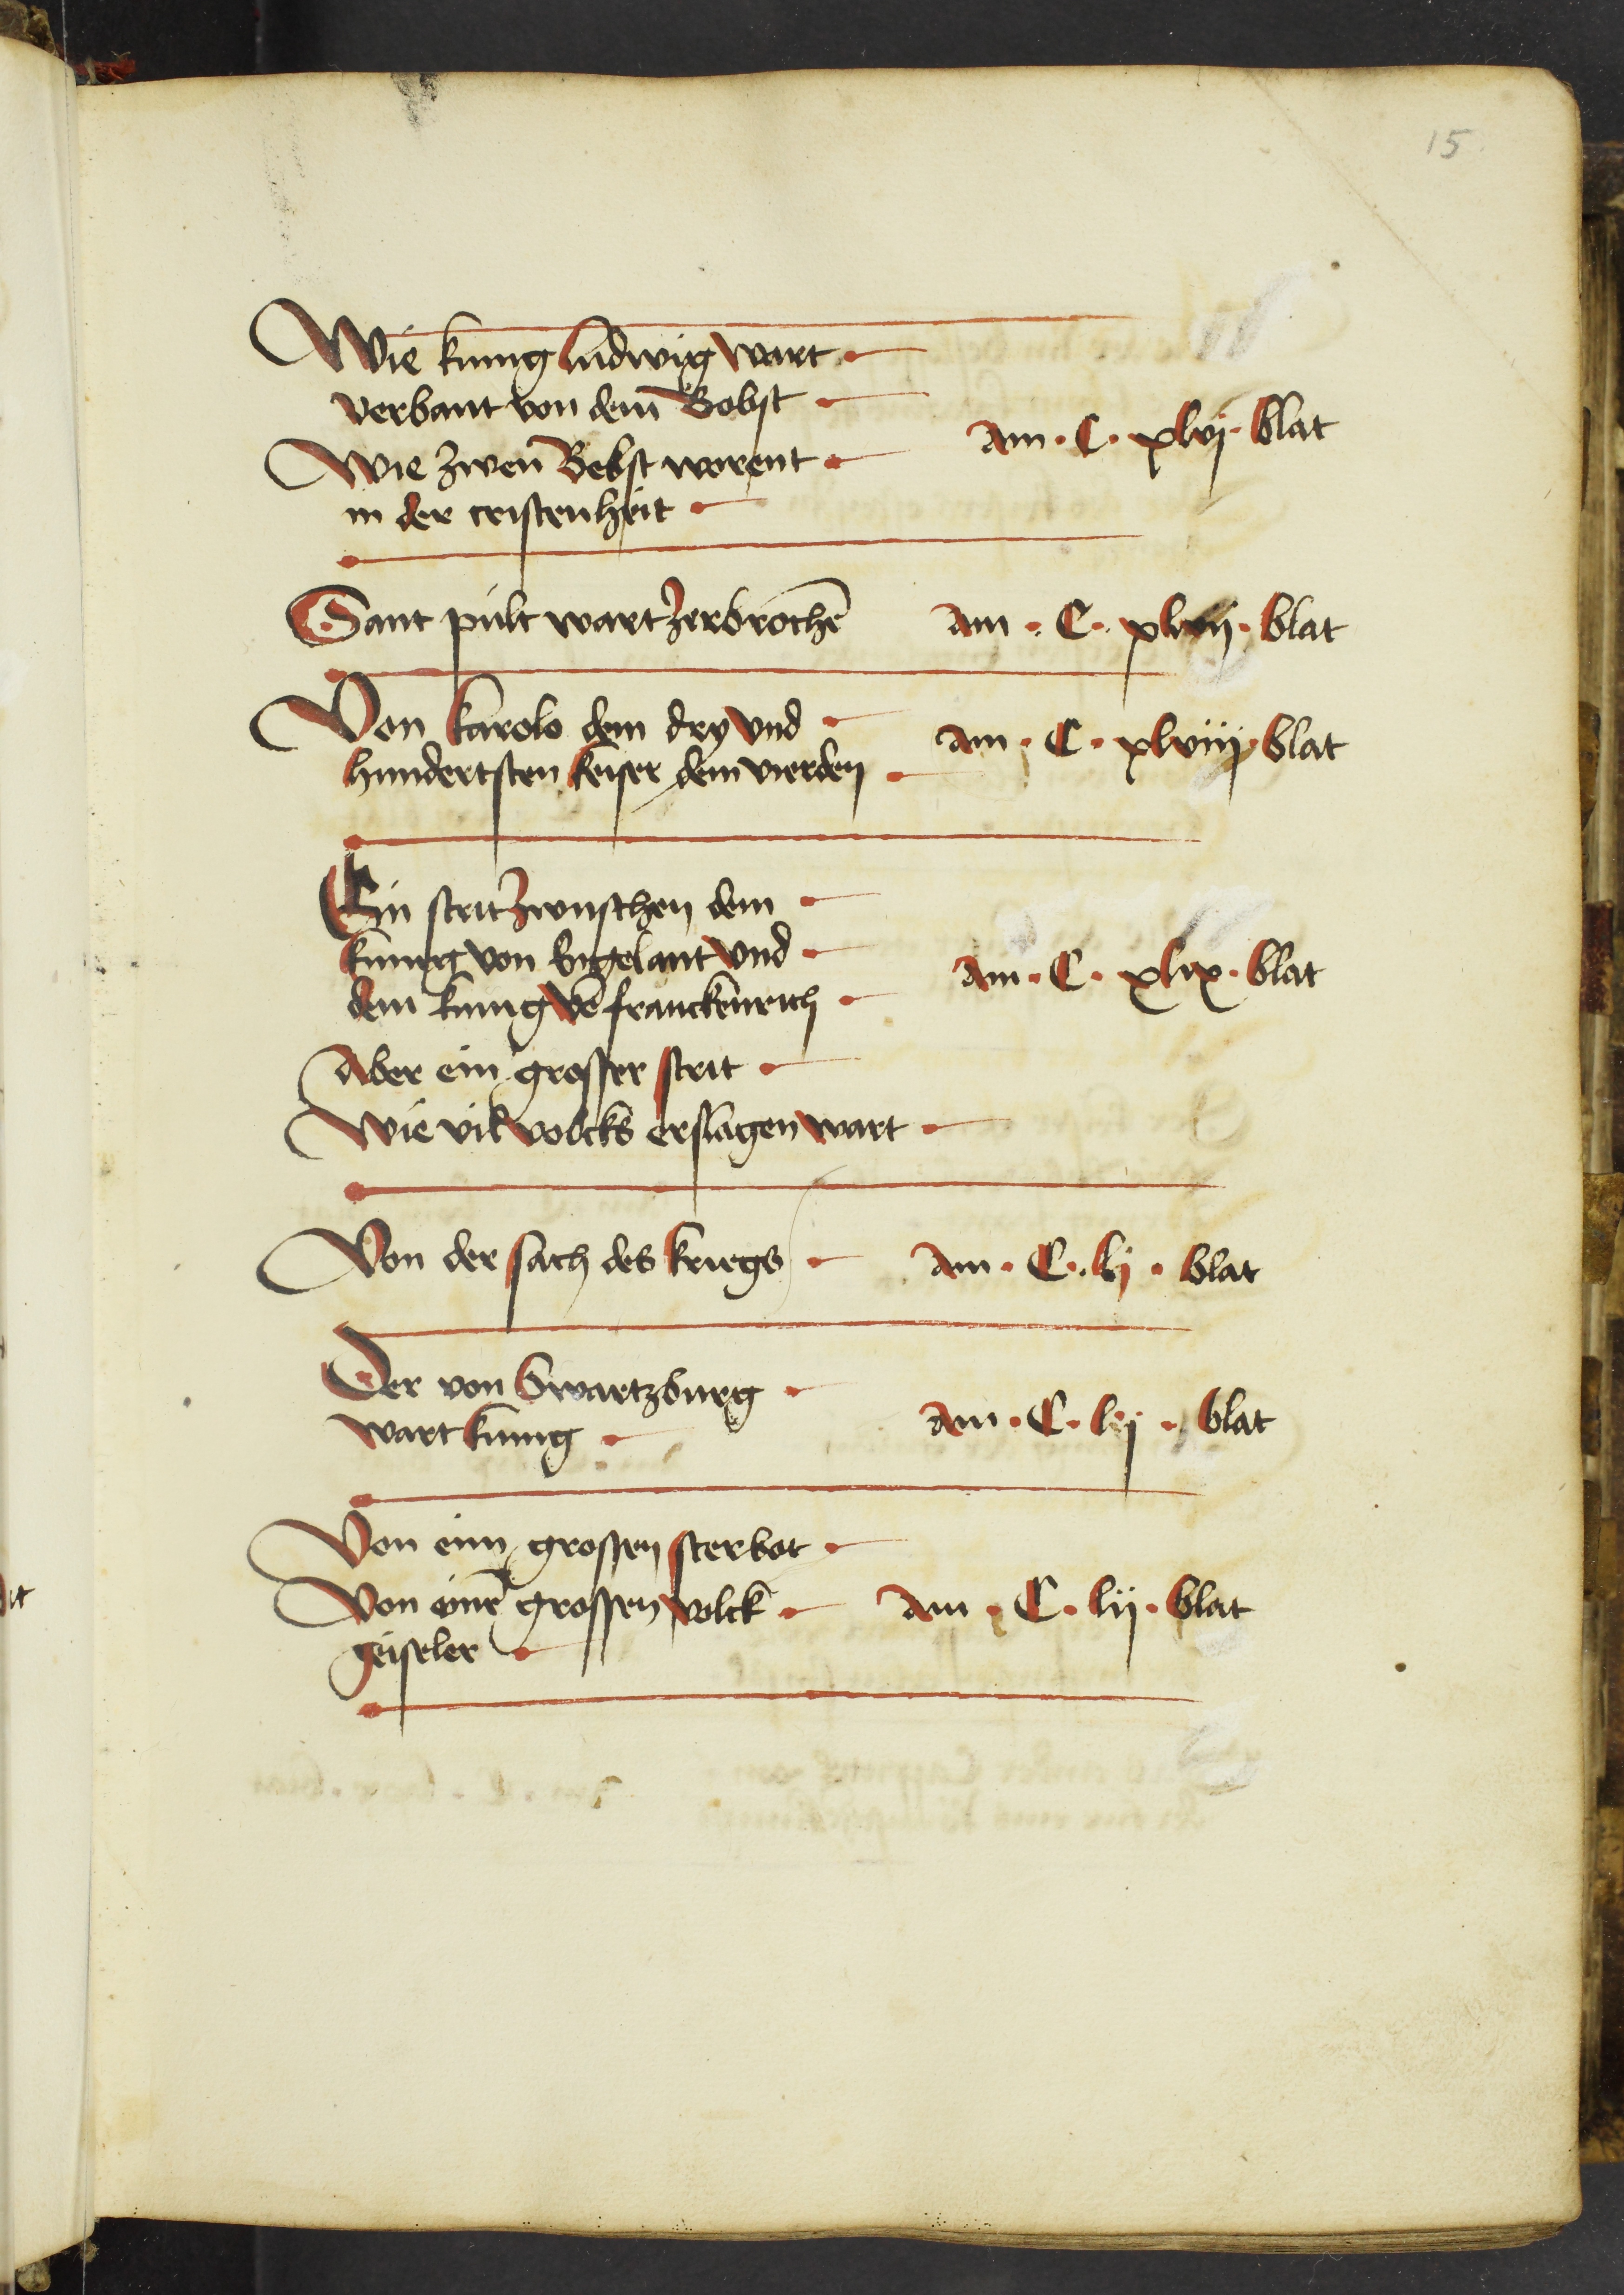 15
Wie kunig ludwig wart
verbant von dem Bobst
Wie zwen Bebst worent
in der cristenheit
am · C · xlvj · blat
Sant pult wart zerbrochē am · C · xlvij · blat
Von karolo dem dry vnd
hundertsten keiser dem vierden
am · C · xlviij · blat
Ein strit zwuschen dem
kunig von Engelant vnd
dem kunig vō franckenrich
am · C · xlix · blat
Aber ein grosser strit
Wie vil volcks erslagen wart
Von der sach des kriegs am · C · lj · blat
Der von Swartzburg
wart kunig
am · C · lj · blat
Von eim grossen sterbot
Von einē grossen volck am · C · lij · blat
geiseler